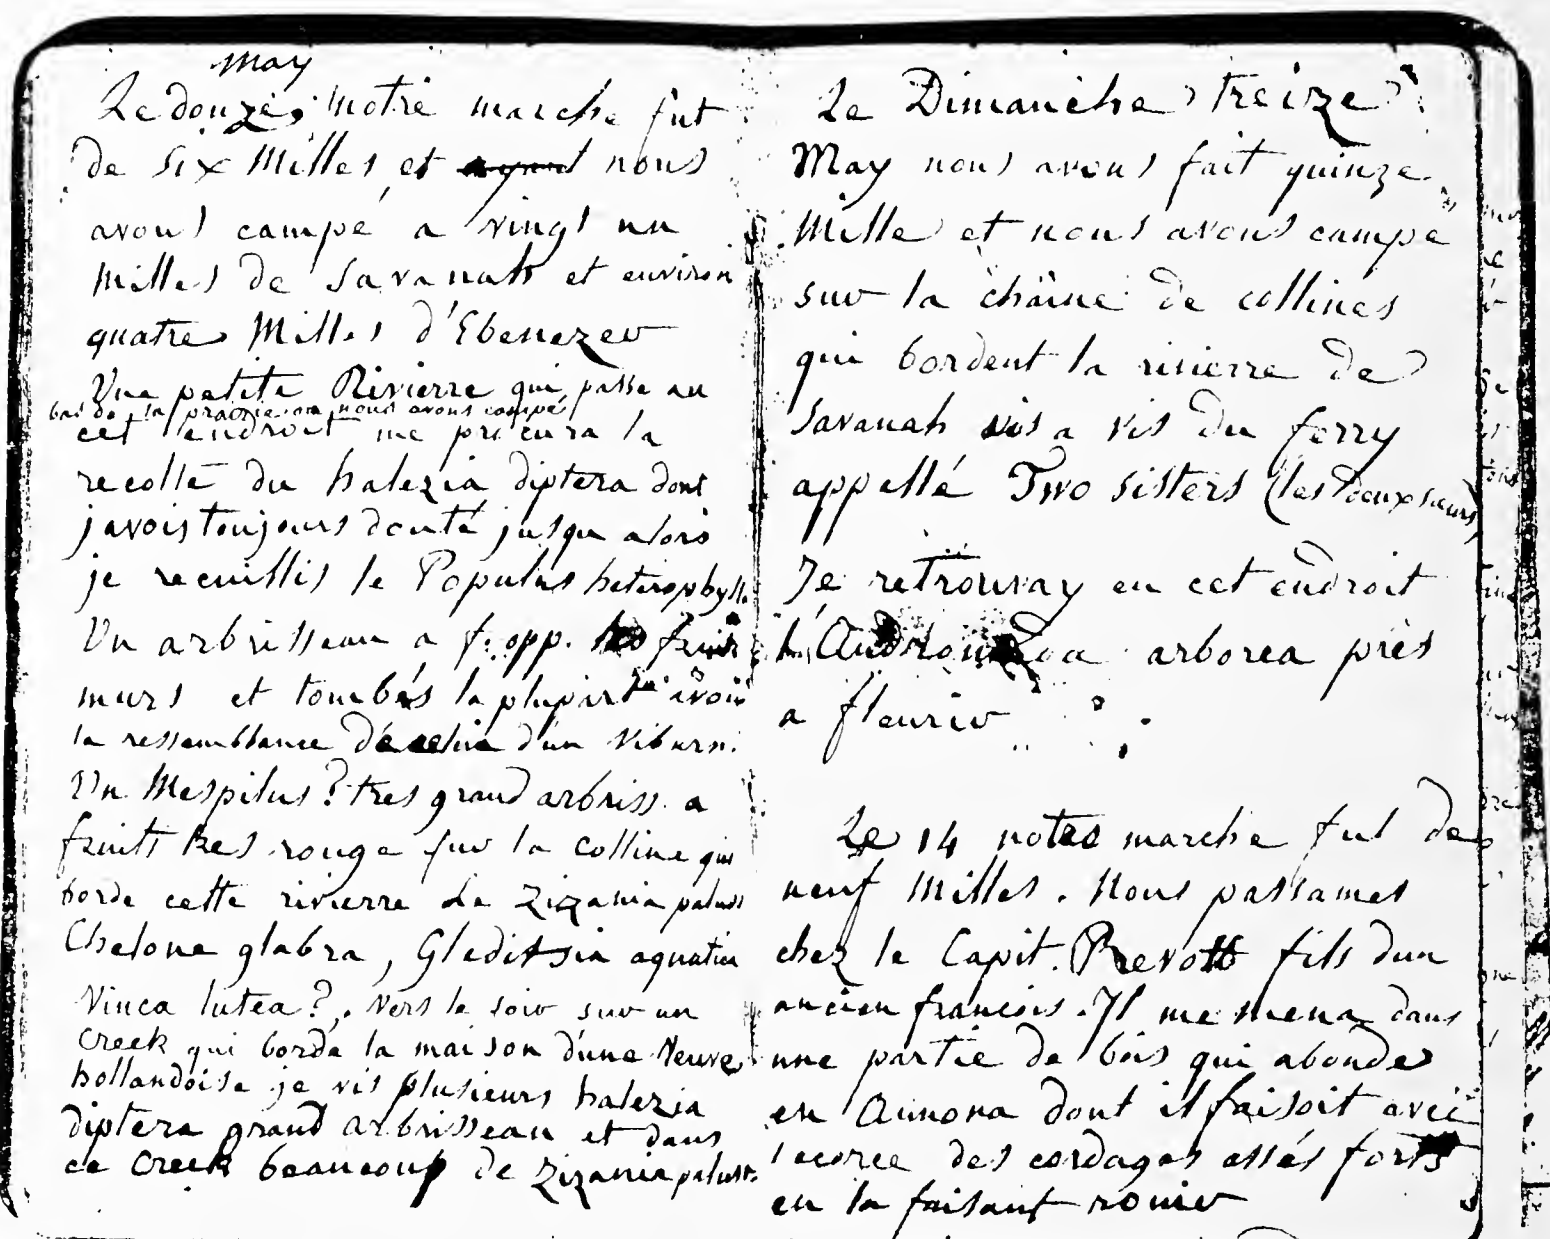 May
Le douze, notre marche fut
de Six Milles et ayant nous
avons campé a vingt un
Milles de Savanah et environ
quatre Milles d'Ebenezer
Une petite Rivierre qui passe au
bas de la prairie ou nous avons campé
cet endroit me procura la
recolte du halezia diptera dont
javois toujours douté jusqu alors
je recuillis le Populus heterophylla
Un arbrisseau a f. opp. fruits
murs et tombés la plupart avoit
la ressemblance d'un Viburn.
Un Mespilus? tres grand arbriss. a
fruits tres rouge sur la Colline qui
borde cette rivierre Le Zizania palust
Chelone glabra, Gleditsia aquatica
Vinca lutea?. Vers le soir sur un
Creek qui borde la maison d'une Veuve
hollandoise je vis plusieurs halezia
diptera grand arbrisseau et dans
ce Creek beaucoup de Zizania palust.
Le Dimanche treize
May nous avons fait quinze
Mille et nous avons campé
sur la chaine de collines
qui bordent la rivierre de
Savanah vis a vis du ferry
appellé Two sisters (les deux sœurs)
Je retrouvay en cet endroit
arborea près
a fleurir
Le 14 notre marche fut de
neuf Milles. Nous passames
chez le Capit. Prevott fils d'un
ancien francois. Il me mena dans
une partie de bois qui abonde
en Annona dont il faisoit avec
l ecorce des cordages assés forts
en la faisant rouir